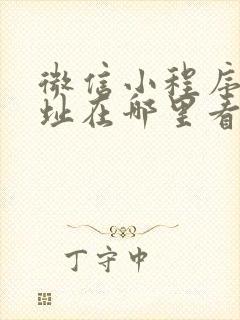 微信小程序
址在哪里看
丁守中